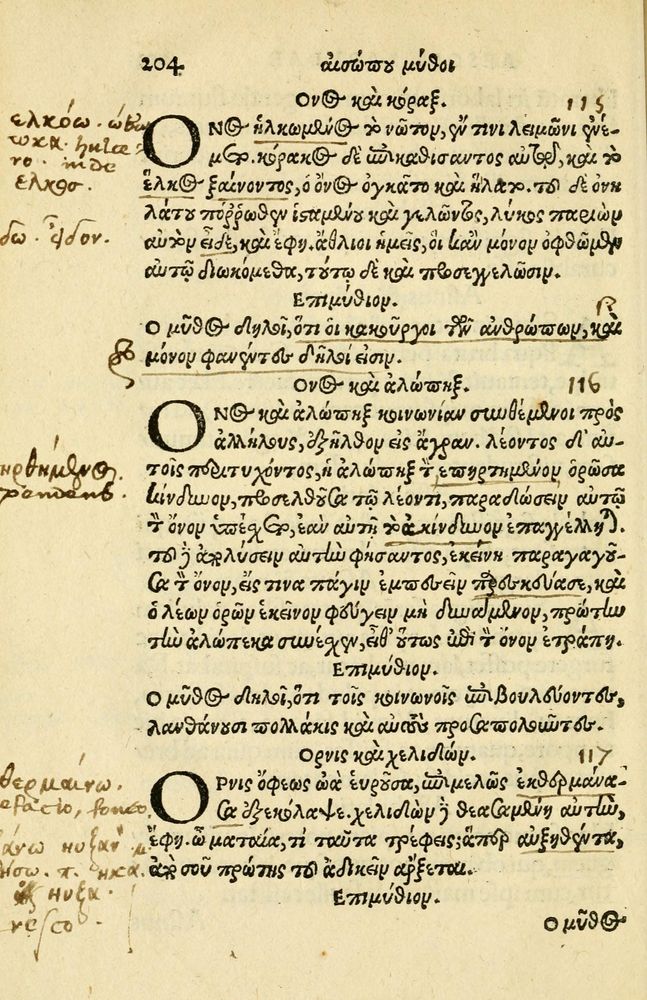 204 αἰσώπου μῦθοι
Ονος καὶ κόραξ. 115
ΟΝος ἡλκωμένος τὸ νῶτον, ἔν τινι λειμῶνι ἐνέ-
μετο. κόρακος δὲ ἐπικαθίσαντος αὐτῷ, καὶ τὸ
ἕλκος ξαίνοντος, ὁ ὄνος ὀγκᾶτο καὶ ἥλατο. τοῦ δὲ ὀνη
λάτου πόῤῥωθεν ἱσταμένου καὶ γελῶντος, λύκος παριὼν
αὐτὸν εἶδε, καὶ ἔφη. ἄθλιοι ἡμεῖς, οἳ κἂν μόνον ὀφθῶμεν
αὐτῷ διωκόμεθα, τούτῳ δὲ καὶ προσεγγελῶσιν.
Επιμύθιον.
Ο μῦθος δηλοῖ, ὅτι οἱ κακοῦργοι τῶν ἀνθρώπων, καὶ
μόνον φανέντες δῆλοί εἰσιν.
Ονος καὶ ἀλώπηξ. 116
ΟΝος καὶ ἀλώπηξ κοινωνίαν συνθέμενοι πρὸς
ἀλλήλους, ἐξῆλθον εἰς ἄγραν. λέοντος δ' αὐ-
τοῖς περιτυχόντος, ἡ ἀλώπηξ τὸν ἐπηρτημένον ὁρῶσα
κίνδυνον, προσελθοῦσα τῷ λέοντι, παραδώσειν αὐτῷ
τὸν ὄνον ὑπέσχετο, ἐὰν αὐτῇ τὸ ἀκίνδυνον ἐπαγγέλληται.
τοῦ δὲ ἀπολύσειν αὐτὴν φήσαντος, ἐκείνη παραγαγοῦ-
σα τὸν ὄνον, εἴς τινα πάγιν ἐμπεσεῖν παρεσκεύασε, καὶ
ὁ λέων ὁρῶν ἐκεῖνον φεύγειν μὴ δυνάμενον, πρώτην
τὴν ἀλώπεκα συνέσχεν, εἶθ' οὕτως ἐπὶ τὸν ὄνον ἐτράπη.
Επιμύθιον.
Ο μῦθος δηλοῖ, ὅτι τοῖς κοινωνοῖς ἐπιβουλεύοντες,
λανθάνουσι πολλάκις καὶ αὐτοὺς προσαπολοῦντες.
Ορνις καὶ χελιδών. 117
ΟΡνις ὄφεως ὠὰ εὑροῦσα, ἐπιμελῶς ἐκθερμάνα-
σα ἐξεκόλαψε. χελιδὼν δὲ θεασαμένη αὐτὴν,
ἔφη. ὦ ματαία, τί ταῦτα τρέφεις; ἅπερ αὐξηθέντα,
ἀπὸ σοῦ πρώτης τοῦ ἀδικεῖν ἄρξεται.
Επιμύθιον.
Ο μῦθος
ελκόω. ώσω
ωκα. hulce
ro. inde
ελκος.
ειδον.
pendens.
θερμαίνω.
efacio, foueo.
ηυξα.
resco